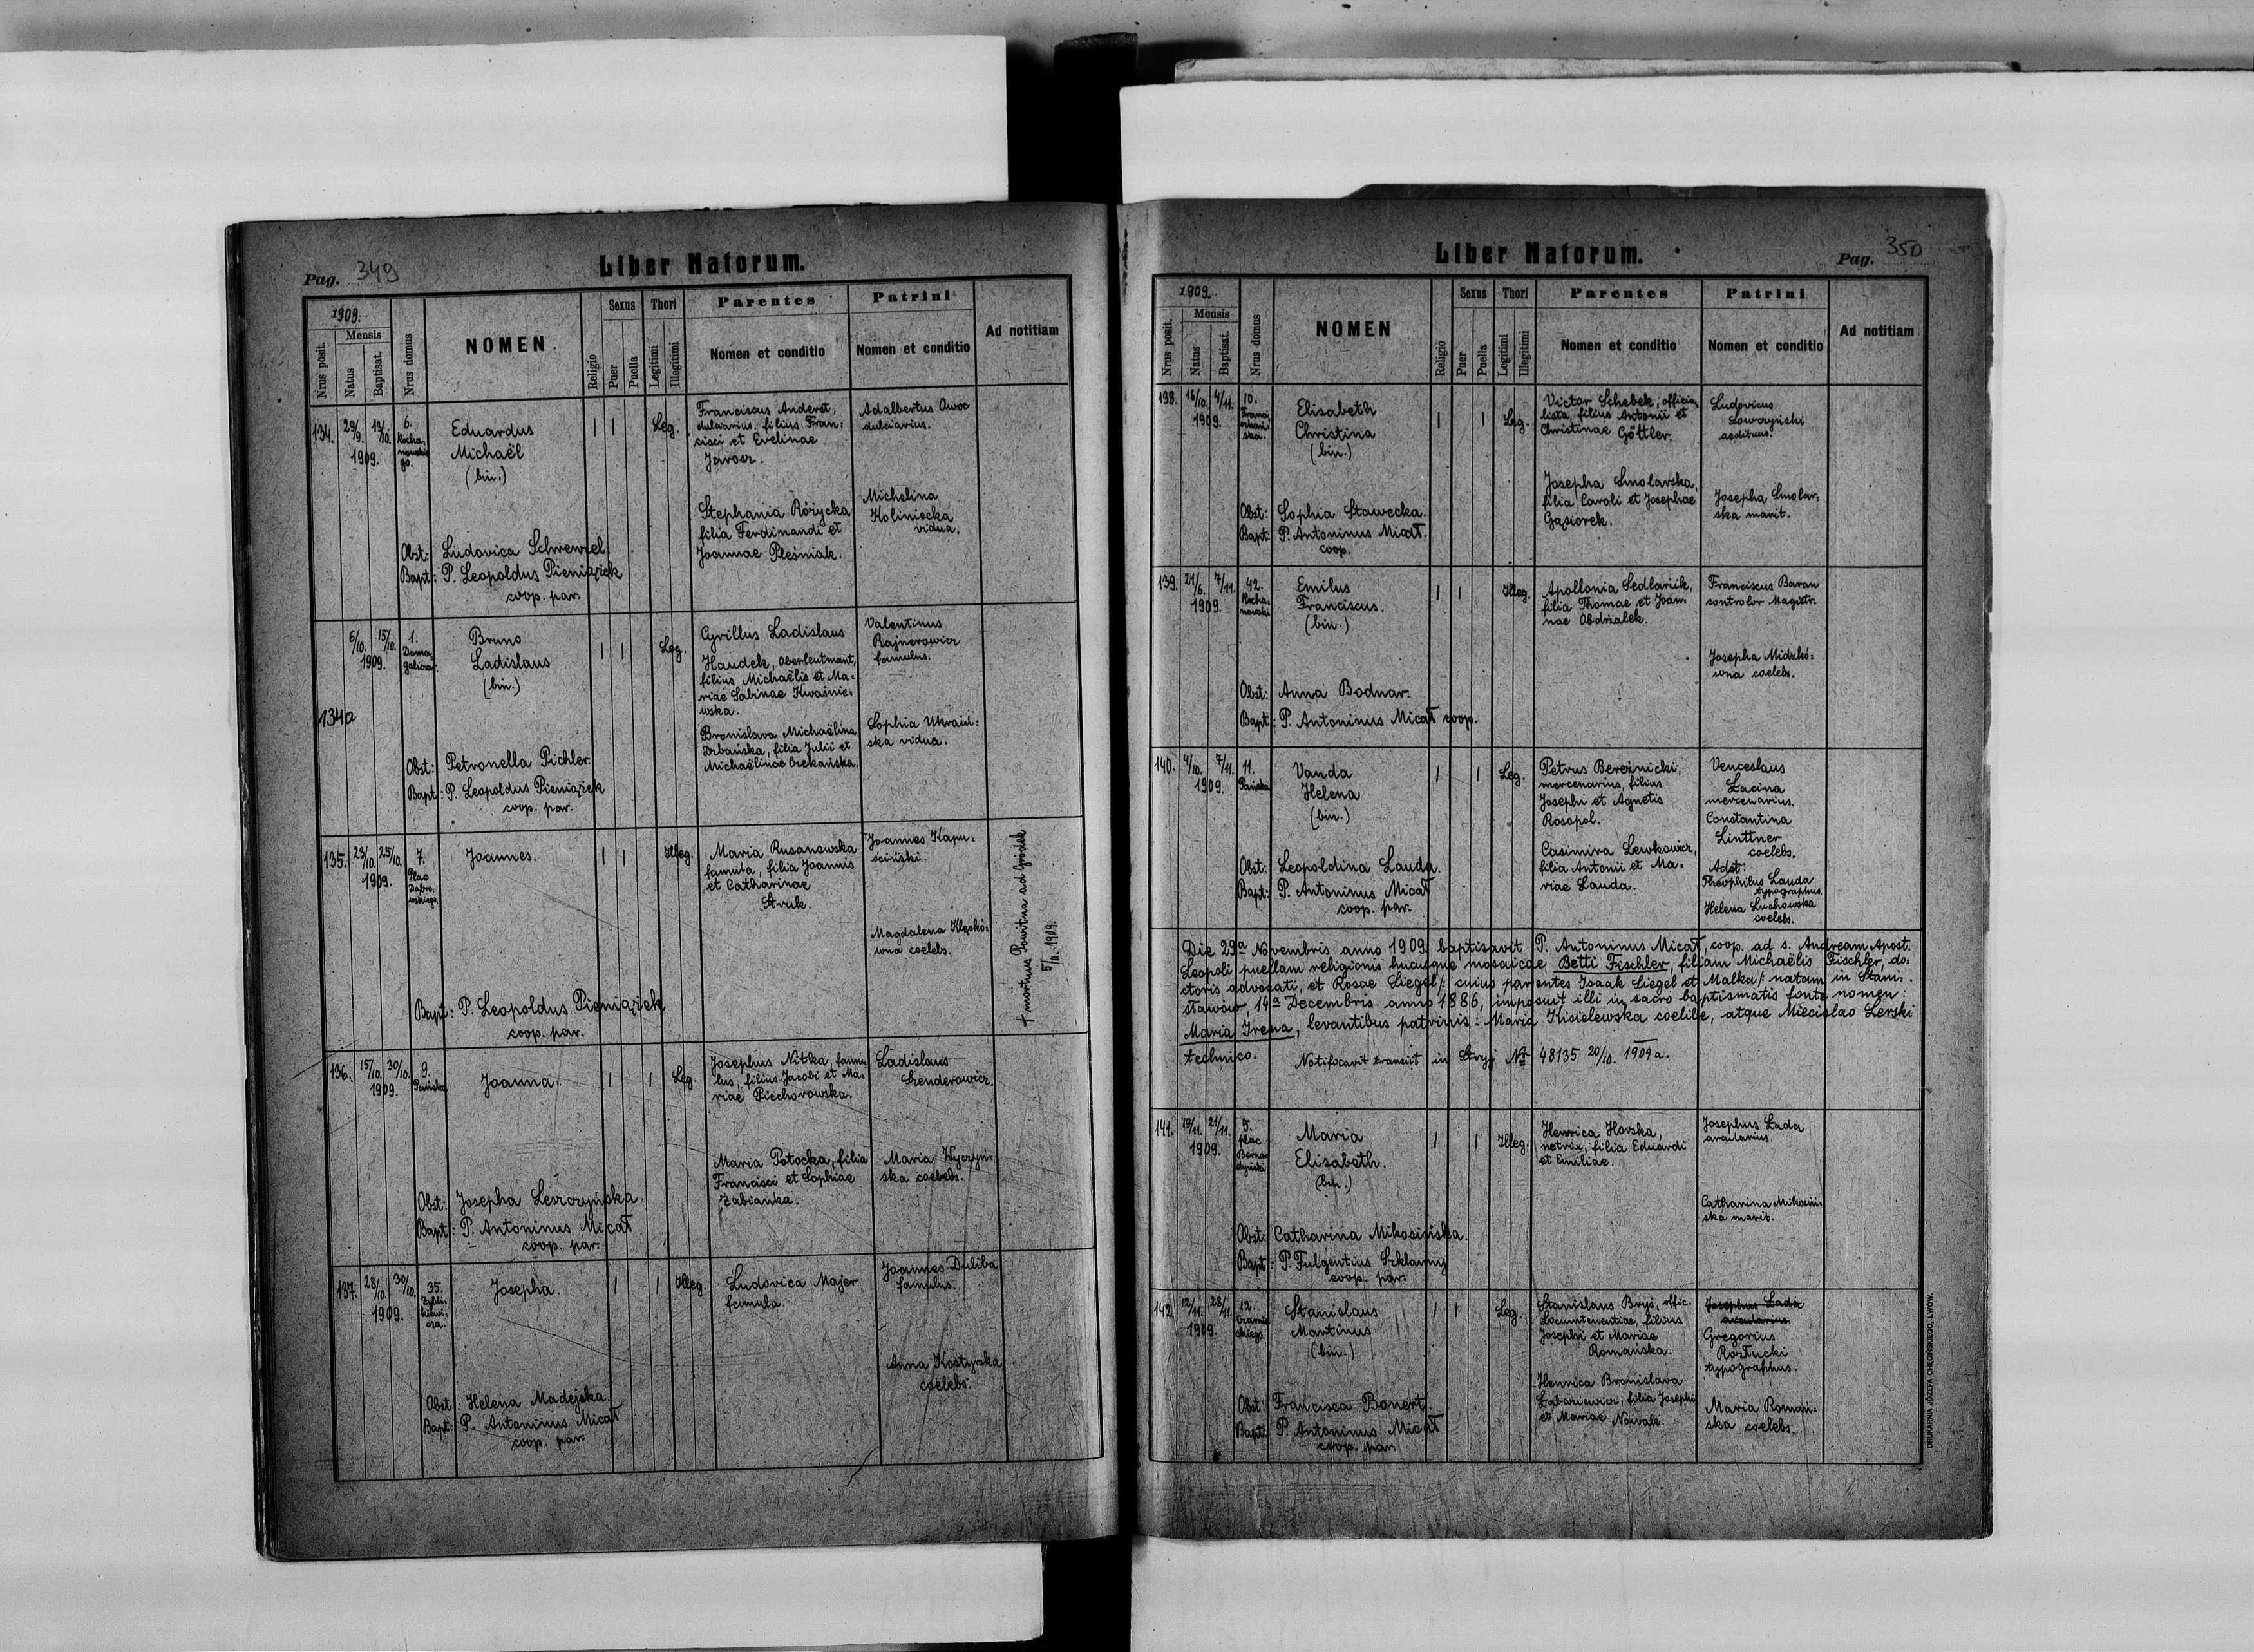 Pag. 349
Liber Natorum.
1909.
Mensis
Nrus posit.
Natus
Baptisat.
Nrus domus
NOMEN
Religio
Sexus
Puer
Puella
Thori
Legitimi
Illegitimi
Parentes
Nomen et conditio
Patrini
Nomen et conditio
Ad notitiam
134.
29/9.
19/10.
1909.
6.
Kocha-
nowskie-
go.
Eduardus
Michaël
(bin.)
Obst: Ludovica Schwenzel
Bapt: P. Leopoldus Pieniążek
coop. par.
| |
Leg.
Franciscus Anderet,
dulciarius, filius Fran-
cisci et Evelinae
Jarosz.
Stephania Różycka
filia Ferdinandi et
Joannae Pleśniak.
Adalbertus Owoc
dulciarius.
Michelina
Koliniecka
vidua.
134a
6/10.
15/10.
1909.
1.
Doma-
galiczów
Bruno
Ladislaus
(bin.)
Obst: Petronella Pichler.
Bapt: P. Leopoldus Pieniążek
coop. par.
| |
Leg.
Cyrillus Ladislaus
Haudek, Oberleutmant,
filius Michaëlis et Ma-
riae Sabinae Kwaśnie-
wska.
Bronislava Michaëlina
Drbańska, filia Julii et
Michaëlinae Czekańska.
Valentinus
Rajnerowicz
famulus.
Sophia Ukraiń-
ska vidua.
135.
23/10.
25/10.
1909.
7.
Plac
Dąbro-
wskiego.
Joannes.
Bapt: P. Leopoldus Pieniążek
coop. par.
| |
Illeg.
Maria Rusanowska
famula, filia Joannis
et Catharinae
Struk.
Joannes Kapu-
ściński.
Magdalena Klęskó-
wna coelebs.
† mortuus Powitna ad Gródek
5/11. 1909.
136.
15/10.
30/10.
1909.
9.
Pańska
Joanna.
Obst: Josepha Leszczyńska.
Bapt: P. Antoninus Micał
coop. par.
| |
Leg.
Josephus Nitka, famu-
lus, filius Jacobi et Ma-
riae Piechorowska.
Maria Potocka, filia
Francisci et Sophiae
Żabianka.
Ladislaus
Szenderowicz.
Maria Wyczyń-
ska coelebs.
137.
28/10.
30/10.
1909.
35.
Zybli-
kiewi-
cza.
Josepha.
Obst: Helena Madejska.
Bapt: P. Antoninus Micał
coop. par.
| |
Illeg.
Ludovica Majer
famula.
Joannes Duliba
famulus.
Anna Kostyrska
coelebs.
Liber Natorum.
Pag. 350
1909.
Mensis
Nrus posit.
Natus
Baptisat.
Nrus domus
NOMEN
Religio
Sexus
Puer
Puella
Thori
Legitimi
Illegitimi
Parentes
Nomen et conditio
Patrini
Nomen et conditio
Ad notitiam
138.
16/10.
4/11.
1909.
10.
Franci-
szkań-
ska.
Elisabeth
Christina
(bin.)
Obst: Sophia Stawecka.
Bapt: P. Antoninus Micał.
coop.
| |
Leg.
Victor Schebek, officia-
lista, filius Antonii et
Christinae Göttler.
Josepha Smolarska,
filia Caroli et Josephae
Gąsiorek.
Ludovicus
Lowczyński
aedituus.
Josepha Smolar-
ska marit.
139.
21/6.
7/11.
1909.
42.
Kocha-
nowski
Emilus
Franciscus.
(bin.)
Obst: Anna Bodnar.
Bapt: P. Antoninus Micał coop.
| |
Illeg.
Apollonia Sedlarzik,
filia Thomae et Joan-
nae Obdrzalek.
Franciscus Baran
controlor Magistr.
Josepha Midzkó-
wna coelebs.
140.
4/10.
7/11.
1909.
11.
Pańska
Vanda
Helena
(bin.)
Obst: Leopoldina Lauda.
Bapt: P. Antoninus Micał
coop. par.
| |
Leg.
Petrus Bereźnicki,
mercenarius, filius
Josephi et Agnetis
Rosopol.
Casimira Lewkowicz,
filia Antonii et Ma-
riae Lauda.
Venceslaus
Lacina
mercenarius.
Constantina
Linttner
coelebs.
Adst:
Theophilus Lauda
typographus
Helena Suchowska
coelebs.
Die 29a Novembris anno 1909 baptisavit P. Antoninus Micał, coop. ad s. Andream Apost.
Leopoli puellam religionis hucusque mosaicae Betti Fischler, filiam Michaëlis Fischler, do-
ctoris advocati, et Rosae Siegel /: cuius parentes Isaak Siegel et Malka :/ natam in Stani-
sławów, 14a Decembris anno 1886, imposuit illi in sacro baptismatis fonte nomen:
Maria Irena, levantibus patrinis: Maria Kisielewska coelibe, atque Miecislao Lerski
technico.
Notificavit transiit in Stryj No 48135 20/10. 1909 a.
141.
19/11.
21/11.
1909.
5.
plac
Berna-
dyński
Maria
Elisabeth.
(bin.)
Obst: Catharina Mikosińska.
Bapt: P. Fulgentius Szklanny
coop. par.
| |
Illeg.
Henrica Horska,
netrix, filia Eduardi
et Emiliae.
Josephus Łada
arcularius.
Catharina Mikosiń-
ska marit.
142.
12/11.
28/11.
1909.
12.
Czarnie-
ckiego
Stanislaus
Martinus
(bin.)
Obst: Francisca Bonert.
Bapt: P. Antoninus Micał
coop. par.
| |
Leg.
Stanislaus Bryś, offic.
Locumtenentiae, filius
Josephi et Mariae
Romańska.
Henrica Bronislava
Łabariewicz, filia Josephi
et Mariae Nowak.
Josephus Łada
arcularius.
Gregorius
Rozłucki
typographus.
Maria Romań-
ska coelebs.
DRUKARNIA JÓZEFA CHĘCIŃSKIEGO, LWÓW.